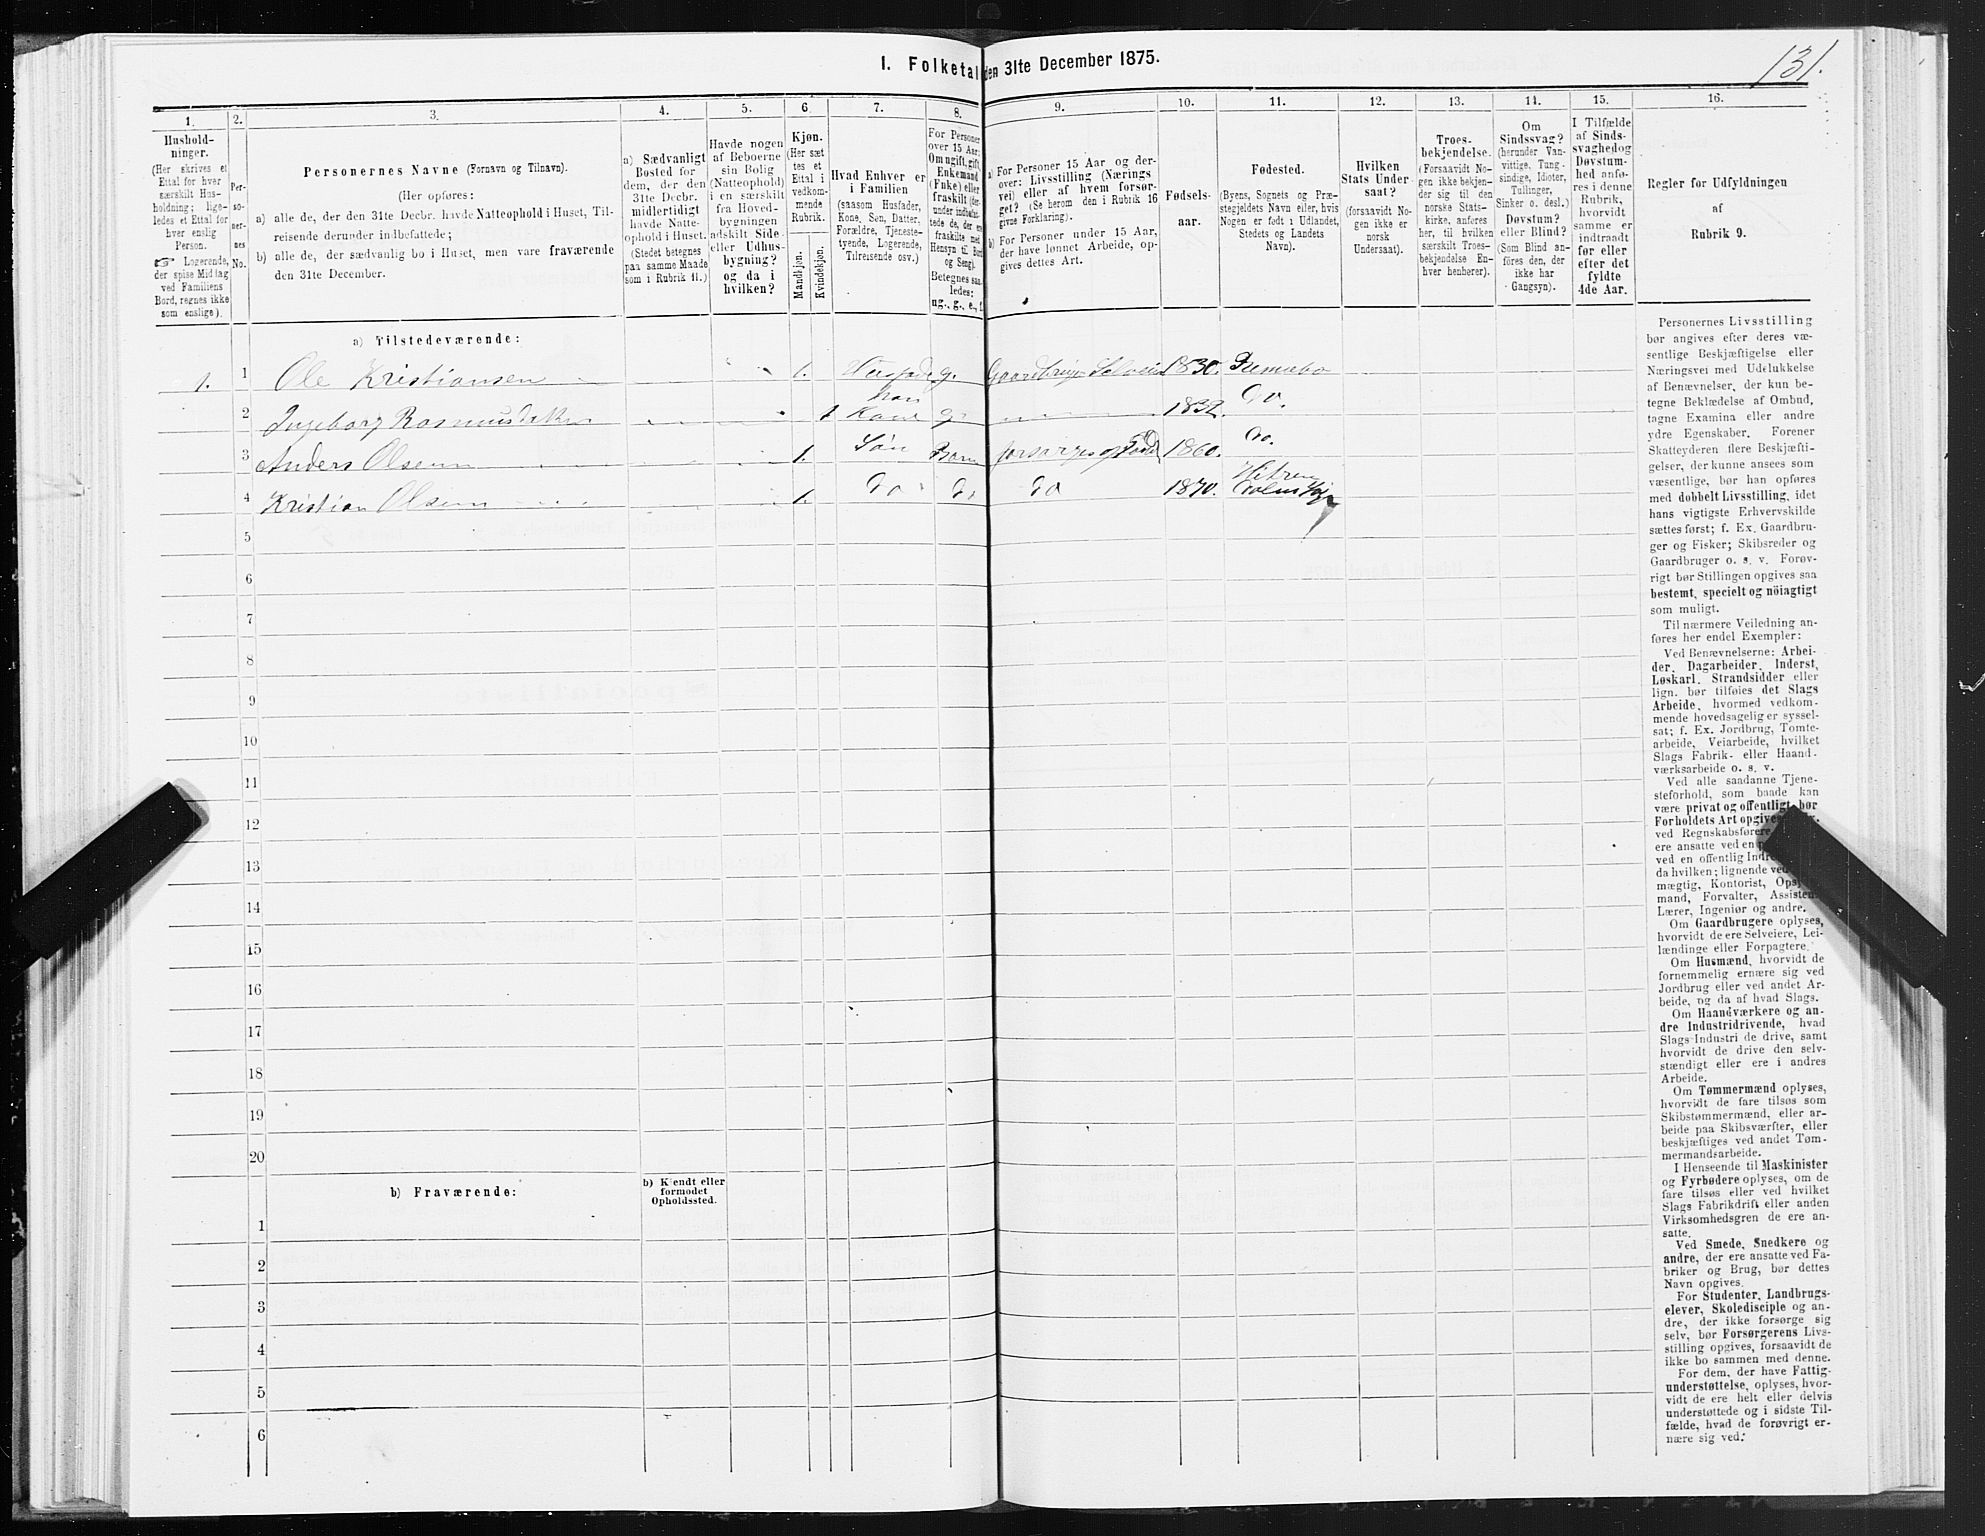 1. Folketal den 31te December 1875.
131.
1.
2.
3.
4.
5.
6.
7.
8.
9.
10.
11.
12.
13.
14.
15.
16.
Hushold-
ninger.
(Her skrives et
Ettal for hver
særskilt Hus-
holdning; lige-
ledes et Ettal for
hver enslig
Person.
☞ Logerende,
der spise Middag
ved Familiens
Bord, regnes ikke
som enslige).
Per-
so-
ner-
nes
No.
Personernes Navne (Fornavn og Tilnavn).
(Her opføres:
a) alle de, der den 31te Decbr. havde Natteophold i Huset, Til-
reisende derunder indbefattede;
b) alle de, der sædvanlig bo i Huset, men vare fraværende
den 31te December.
a) Sædvanligt
Bosted for
dem, der den
31te Decbr.
midlertidigt
havde Natte-
ophold i Huset.
(Stedet betegnes
paa samme Maade
som i Rubrik 11.)
Havde nogen
af Beboerne
sin Bolig
(Natteophold)
i en særskilt
fra Hoved-
bygningen
adskilt Side-
eller Udhus-
bygning?
og da i
hvilken?
Kjøn.
(Her sæt
tes et
Ettal i
vedkom-
mende
Rubrik.
Mandkjøn.
Kvindekjøn.
Hvad Enhver er
i Familien
(saasom Husfader,
Kone, Søn, Datter,
Forældre, Tjeneste-
tyende, Logerende,
Tilreisende osv.)
For Personer
over 15 Aar:
Om ugift, gift,
Enkemand
(Enke) eller
fraskilt (der-
under indbefat-
tede de, der ere
fraskilte med
Hensyn til Bord
og Seng).
Betegnes saa-
ledes:
ug., g., e., f.
a) For Personer 15 Aar og der-
over: Livsstilling (Nærings
vei) eller af hvem forsør-
get? (Se herom den i Rubrik 16
givne Forklaring).
b) For Personer under 15 Aar,
der have lønnet Arbeide, op-
gives dettes Art.
Fødsels-
aar.
Fødested.
(Byens, Sognets og Præ-
stegjeldets Navn eller, hvis
Nogen er født i Udlandet,
Stedets og Landets
Navn).
Hvilken
Stats Under
saat?
(forsaavidt No-
gen ikke er
norsk
Undersaat).
Troes-
bekjendelse.
(Forsaavidt No-
gen ikke bekjen-
der sig til den
norske Stats-
kirke, anføres
her, til hvilken
særskilt Troes-
bekjendelse En-
hver henhører).
Om
Sindssvag?
(herunder Van-
vittige, Tung-
sindige, Idioter,
Tullinger,
Sinker o. desl.)
Døvstum?
eller Blind?
(Som Blind an-
føres den, der
ikke har
Gangsyn).
I Tilfælde
af Sinds-
svaghed og
Døvstum-
hed anfø-
res i denne
Rubrik,
hvorvidt
samme er
indtraadt
før eller
efter det
fyldte
4de Aar.
Regler for Udfyldningen
af
Rubrik 9.
a) Tilstedeværende:
1. 1 Ole Kristiansen 1. Husfader g. Gaardbruger Selveier 1830. Remmebo
2 Ingeborg Rasmusdatter 1 hans Kone g. 1832. Do.
3 Anders Olsen 1. Søn Barn forsørges af Fader 1860. Do.
4 Kristian Olsen 1. do do do 1870. Hitren
5
6
7
8
9
10
11
12
13
14
15
16
17
18
19
20
b) Fraværende:
b) Kjendt eller
formodet
Opholdssted.
1
2
3
4
5
6
Personernes Livsstilling
bør angives efter deres væ-
sentlige Beskjæftigelse eller
Næringsvei med Udelukkelse
af Benævnelser, der kun be-
tegne Beklædelse af Ombud,
tagne Examina eller andre
ydre Egenskaber. Forener
Skatteyderen flere Beskjæfti-
gelser, der kunne ansees som
væsentlige, bør han opføres
med dobbelt Livsstilling, idet
hans vigtigste Erhvervskilde
sættes først; f. Ex. Gaardbru-
ger og Fisker; Skibsreder og
Gaardbruger o. s. v. Forøv-
rigt bør Stillingen opgives saa
bestemt, specielt og nöiagtigt
som muligt.
Til nærmere Veiledning an-
føres her endel Exempler:
Ved Benævnelserne: Arbei-
der, Dagarbeider, Inderst,
Løskarl, Strandsidder eller
lign. bør tilføies det Slags
Arbeide, hvormed vedkom-
mende hovedsagelig er syssel-
sat; f. Ex. Jordbrug, Tomte-
arbeide, Veiarbeide, hvilket
Slags Fabrik- eller Haand-
værksarbeide o. s. v.
Ved alle saadanne Tjene-
steforhold, som baade kan
være privat og offentligt, bør
Forholdets Art opgives
ved Regnskabsførere
ere ansatte ved en
ved en offentlig
da hvilken; lignende ved
mægtig, Kontorist,
mand, Forvalter,
Lærer, Ingeniør og andre.
Om Gaardbrugere oplyses,
hvorvidt de ere Selveiere, Lei-
lændinge eller Forpagtere.
Om Husmænd, hvorvidt de
fornemmelig ernære sig ved
Jordbrug eller ved andet Ar-
beide, og da af hvad Slags.
Om Haandværkere og an-
dre Industridrivende, hvad
Slags Industri de drive, samt
hvorvidt de drive den selv-
stændigt eller ere i andres
Arbeide.
Om Tømmermænd oplyses,
hvorvidt de fare tilsøs som
Skibstømmermænd, eller ar-
beide paa Skibsværfter, eller
beskjæftiges ved andet Tøm-
mermandsarbeide.
I Henseende til Maskinister
og Fyrbødere oplyses, om de
fare tilsøs eller ved hvilket
Slags Fabrikdrift eller anden
Virksomhedsgren de ere an-
satte.
Ved Smede, Snedkere og
andre, der ere ansatte ved Fa-
briker og Brug, bør dettes
Navn opgives.
For Studenter, Landbrugs-
elever, Skoledisciple og an-
dre, der ikke forsørge sig
selv, bør Forsørgerens Livs-
stilling opgives, forsaavidt de
ikke bo sammen med denne.
For dem, der have Fattig-
understøttelse, oplyses, hvor-
vidt de ere helt eller delvis
understøttede og i sidste Til-
fælde, hvad de forøvrigt er-
nære sig ved.